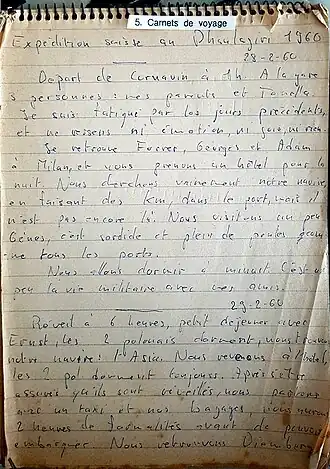 5. Carnets de voyage
Expédition suisse au Dhaulagiri 1960
28-2-60
Départ de Cornavin à 1h. A la gare
3 personnes: mes parents et
Je suis fatigué par les jours précédents,
et ne ressens ni émotion, ni joie, ni rien.
Je retrouve Forrer, Georges et Adam
à Milan, et nous prenons un hôtel pour la
nuit. Nous cherchons vainement notre navire
en faisant des km, dans le port, mais il
n'est pas encore là. Nous visitons un peu
Gênes, c'est sordide et plein de poules com-
me tous les ports.
Nous allons dormir à minuit. C'est un
peu la vie militaire avec ces amis.
29-2-60
Réveil à 6 heures, petit déjeuner avec
Ernst, les 2 polonais dorment, nous trouvons
notre navire: l'Asia. Nous revenons à l'hôtel,
les 2 pol. dorment toujours. Après s'être
assurés qu'ils sont réveillés, nous partons
avec un taxi et nos bagages, nous aurons
2 heures de formalités avant de pouvoir
embarquer. Nous retrouvons Diemberger